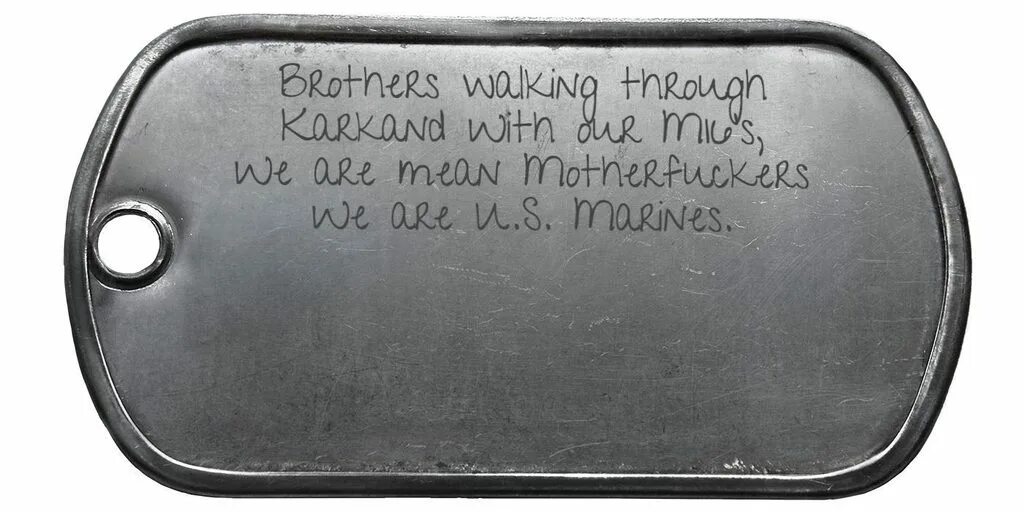 Brothers walking through
Karkand with our M16s,
we are mean Motherfuckers
We are U.S. Marines.